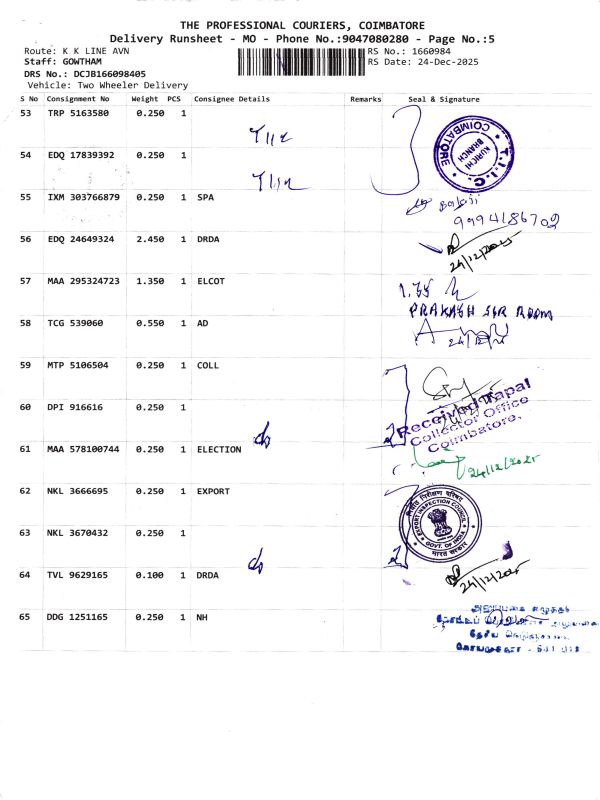 THE PROFESSIONAL COURIERS, COIMBATORE
Delivery Runsheet - MO - Phone No.:9047080280 - Page No.:5
Route: K K LINE AVN
RS No.: 1660984
Staff: GOWTHAM
RS Date: 24-Dec-2025
DRS No.: DCJB166098405
Vehicle: Two Wheeler Delivery
S No Consignment No Weight PCS Consignee Details Remarks Seal & Signature
53 TRP 5163580 0.250 1
T.I.I.C. COIMBATORE
KURICHI BRANCH
54 EDQ 17839392 0.250 1
55 IXM 303766879 0.250 1 SPA
Balaji
9994186702
56 EDQ 24649324 2.450 1 DRDA
24/12/2025
57 MAA 295324723 1.350 1 ELCOT
PRAKASH SIR ROOM
58 TCG 539060 0.550 1 AD
59 MTP 5106504 0.250 1 COLL
60 DPI 916616 0.250 1
Received Tapal
Collector Office
Coimbatore.
61 MAA 578100744 0.250 1 ELECTION
24/12/2025
62 NKL 3666695 0.250 1 EXPORT
निर्यात निरीक्षण परिषद
EXPORT INSPECTION COUNCIL
GOVT. OF INDIA
भारत सरकार
63 NKL 3670432 0.250 1
2
64 TVL 9629165 0.100 1 DRDA
24/12/2025
65 DDG 1251165 0.250 1 NH